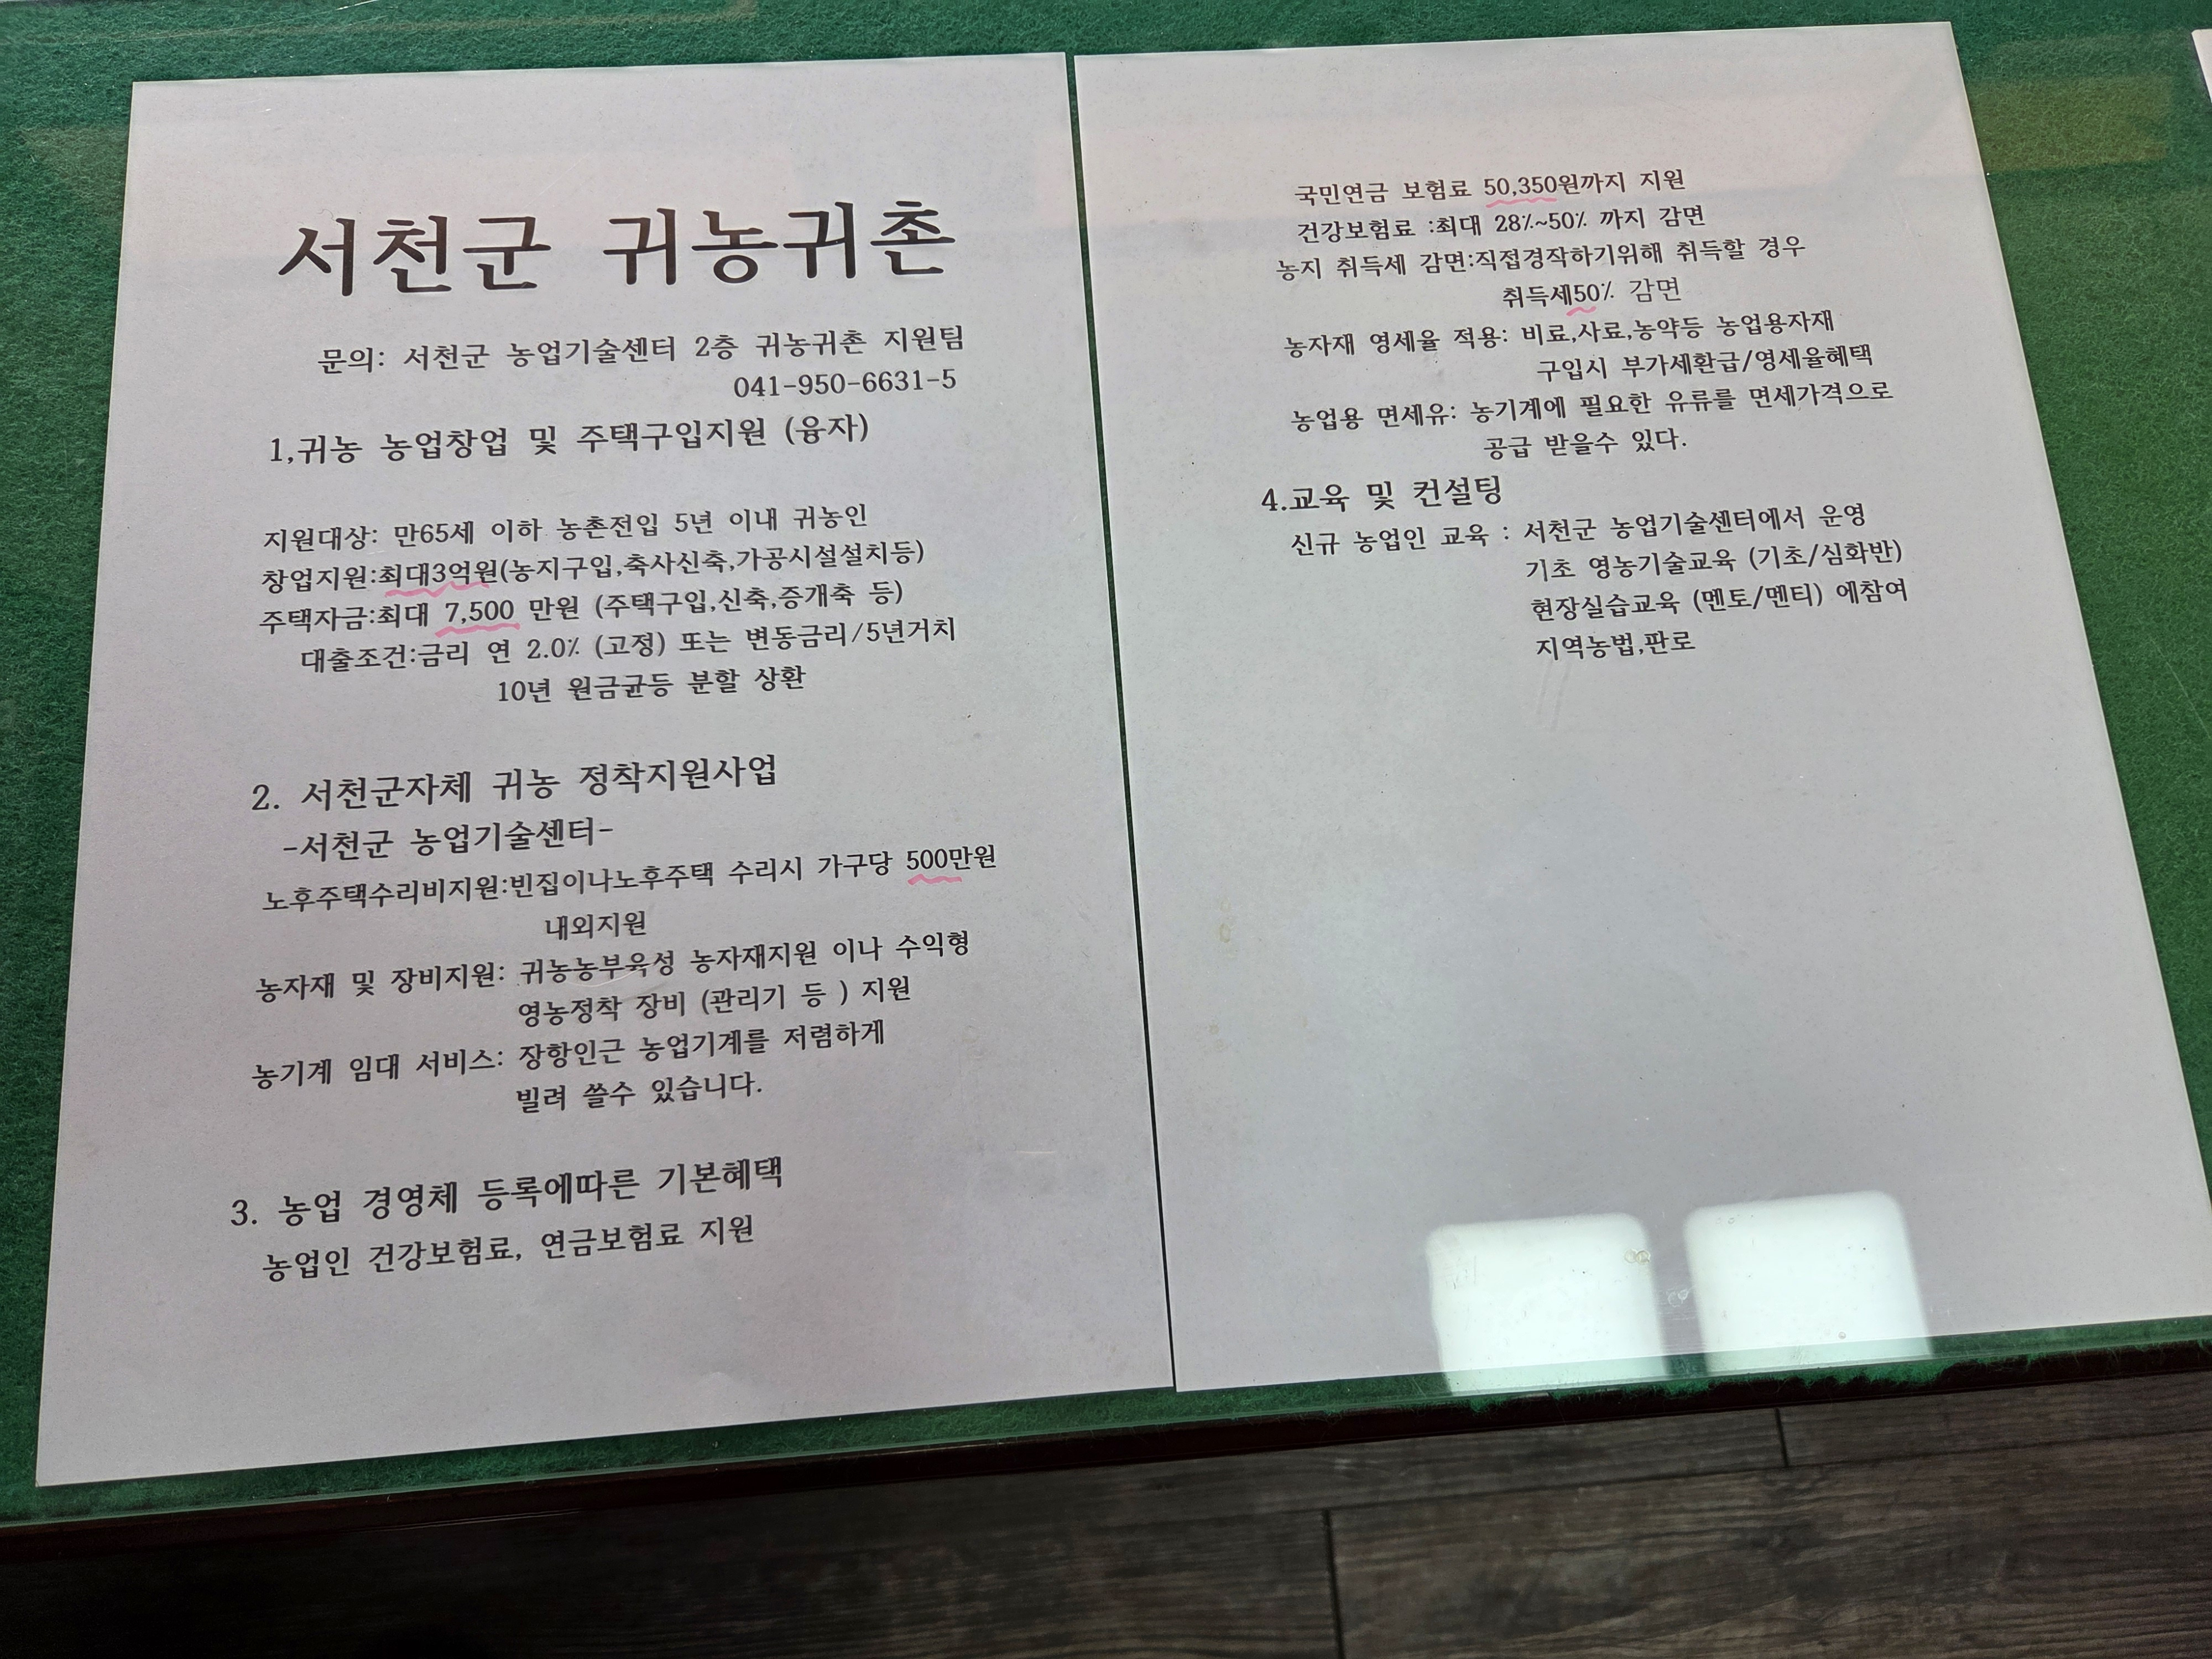 서천군 귀농귀촌
문의: 서천군 농업기술센터 2층 귀농귀촌 지원팀
041-950-6631-5
1,귀농 농업창업 및 주택구입지원 (융자)
지원대상: 만65세 이하 농촌전입 5년 이내 귀농인
창업지원:최대3억원(농지구입,축사신축,가공시설설치등)
주택자금:최대 7,500 만원 (주택구입,신축,증개축 등)
대출조건:금리 연 2.0% (고정) 또는 변동금리/5년거치
10년 원금균등 분할 상환
2. 서천군자체 귀농 정착지원사업
-서천군 농업기술센터-
노후주택수리비지원:빈집이나노후주택 수리시 가구당 500만원
내외지원
농자재 및 장비지원: 귀농농부육성 농자재지원 이나 수익형
영농정착 장비 (관리기 등 ) 지원
농기계 임대 서비스: 장항인근 농업기계를 저렴하게
빌려 쓸수 있습니다.
3. 농업 경영체 등록에따른 기본혜택
농업인 건강보험료, 연금보험료 지원
국민연금 보험료 50,350원까지 지원
건강보험료 :최대 28%~50% 까지 감면
농지 취득세 감면:직접경작하기위해 취득할 경우
취득세50% 감면
농자재 영세율 적용: 비료,사료,농약등 농업용자재
구입시 부가세환급/영세율혜택
농업용 면세유: 농기계에 필요한 유류를 면세가격으로
공급 받을수 있다.
4.교육 및 컨설팅
신규 농업인 교육 : 서천군 농업기술센터에서 운영
기초 영농기술교육 (기초/심화반)
현장실습교육 (멘토/멘티) 에참여
지역농법,판로